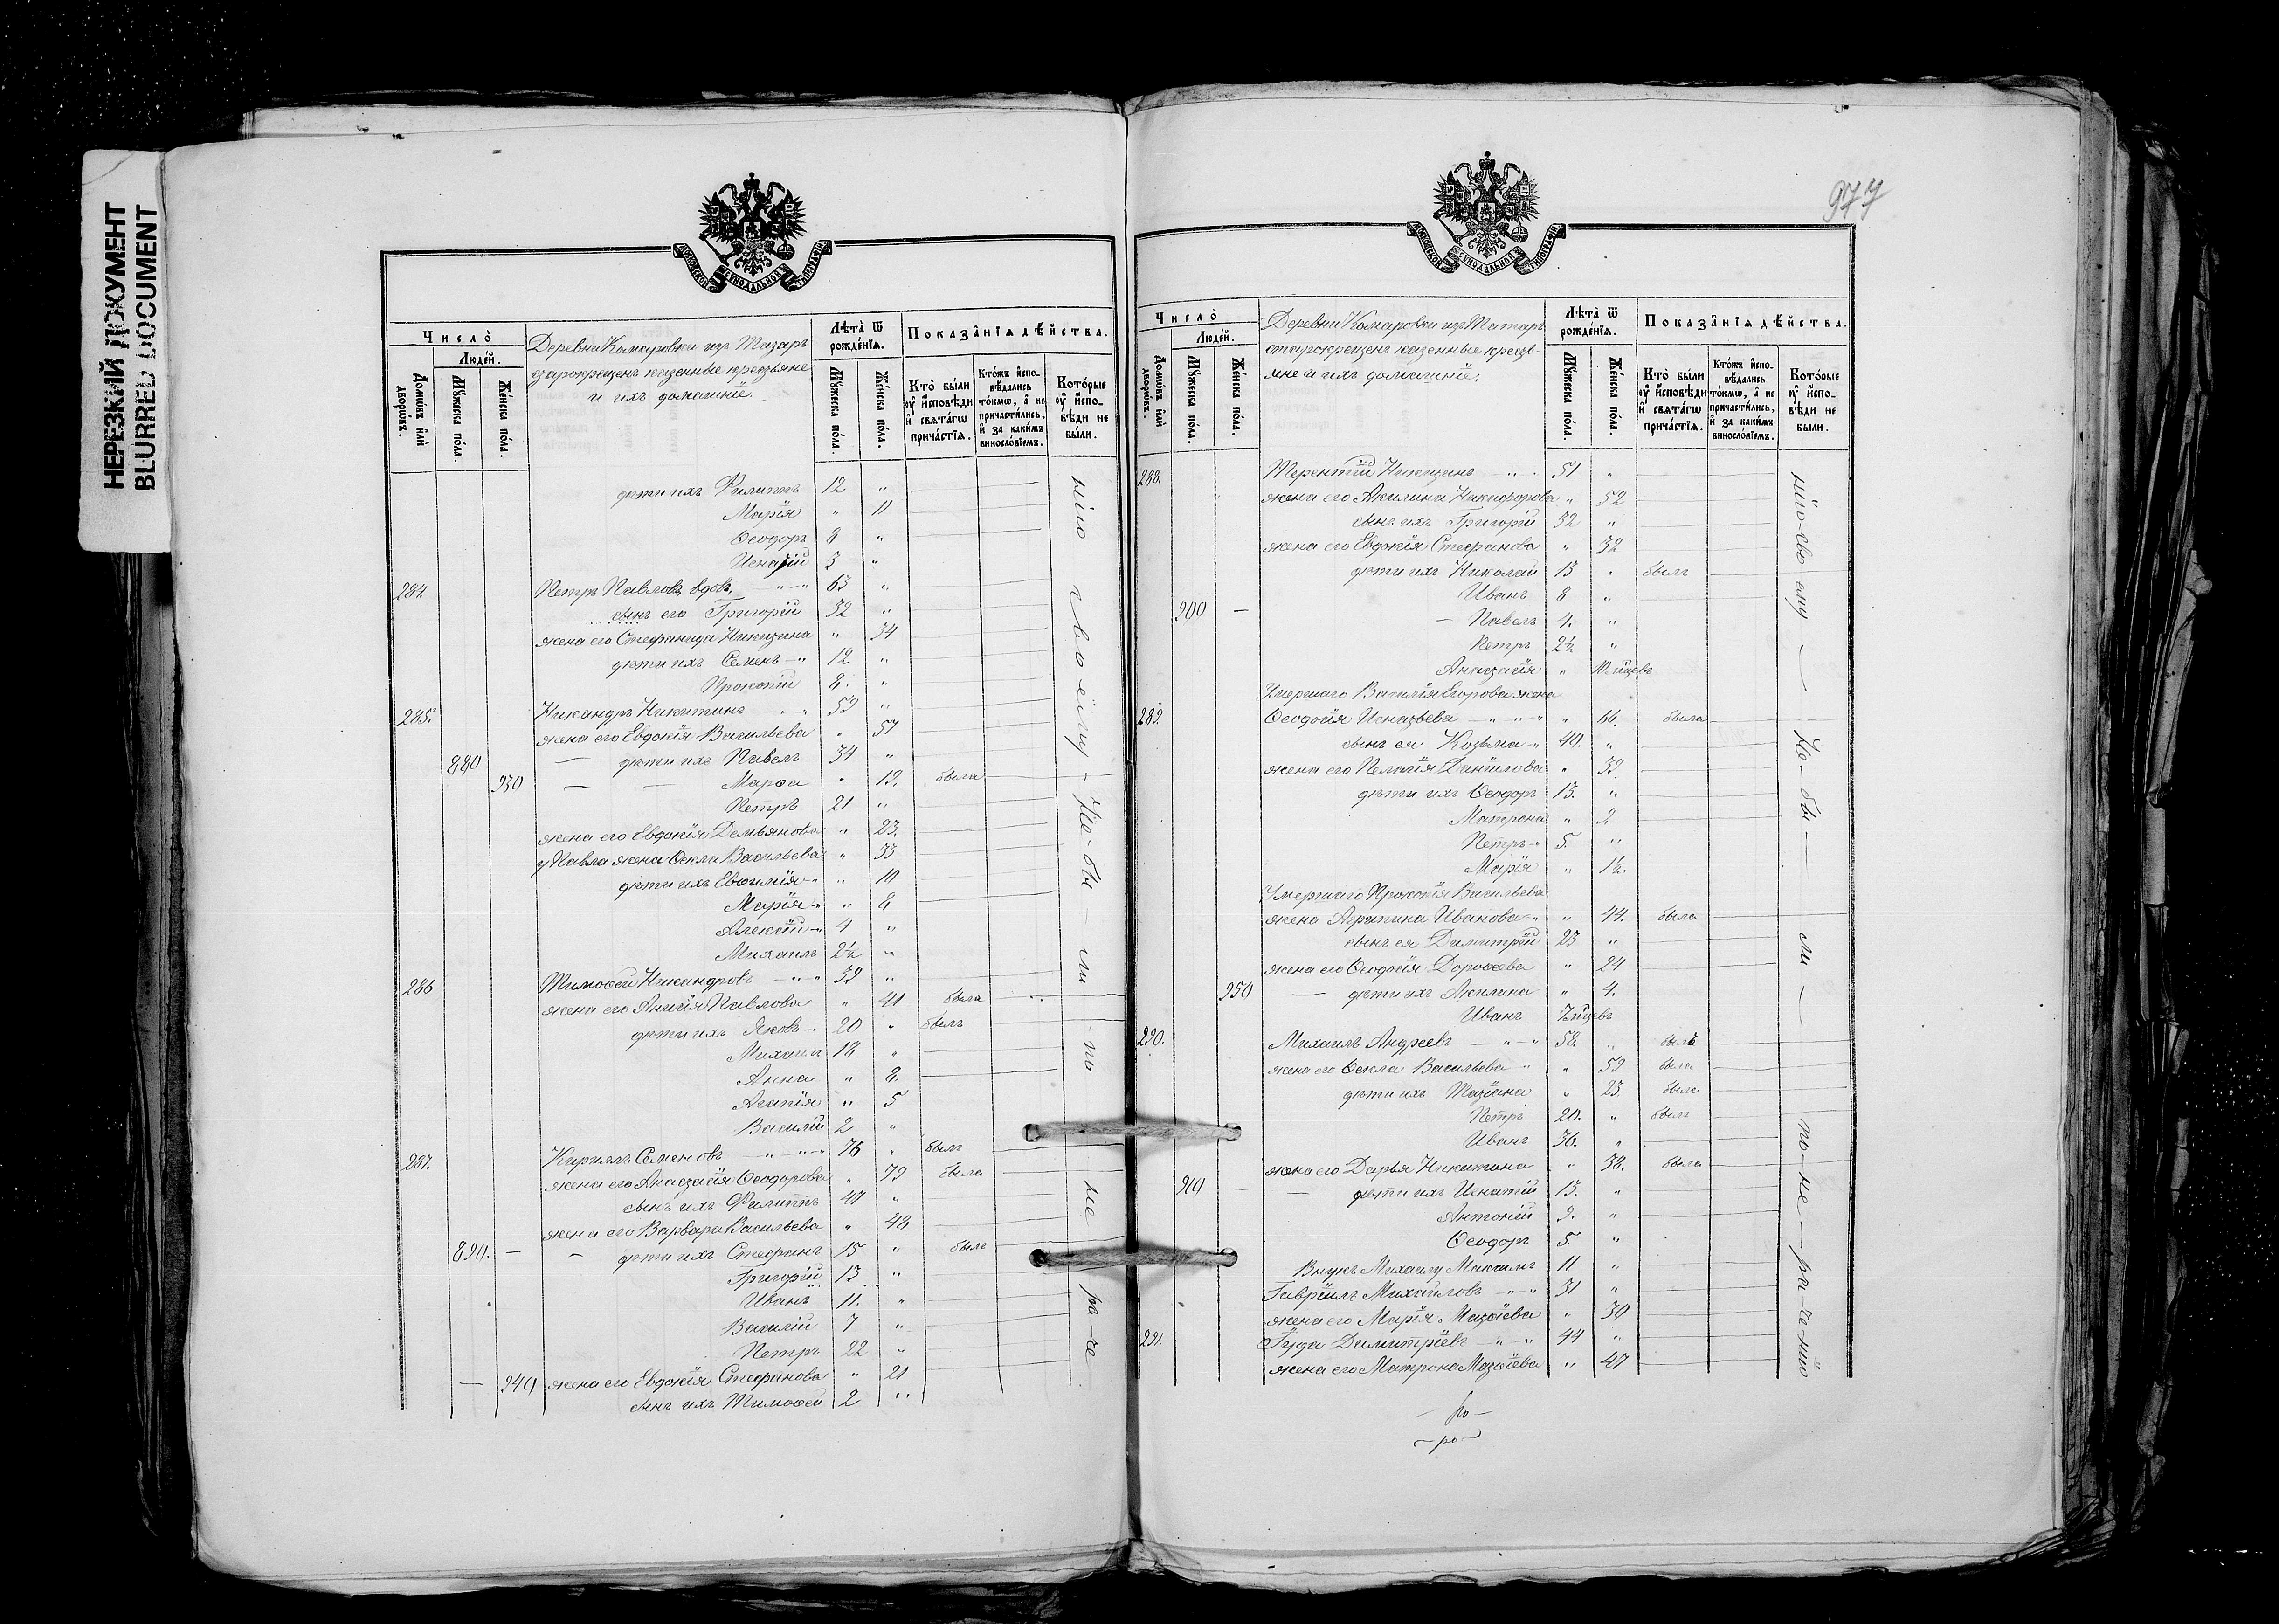 НЕРЕЗКИЙ ДОКУМЕНТ
BLURRED DOCUMENT
МОСКОВСКОЙ СѴНОДАЛЬНОЙ ТИПОГРАФІИ
Число̀
Людей.
Домѡвъ или дворѡвъ.
Мꙋжеска пола.
Женска пола.
Деревни Комаровки изъ Татаръ
старокрещенъ казенные крестьяне
и ихъ домашніе.
Лѣта ѿ рожденїя.
Мꙋжеска пола.
Женска пола.
Показанїя дѣйства.
Кто были ᲂу исповѣди и святагѡ причастїя.
Ктожъ исповѣдались токмѡ, а не причастились, и за какимъ винословїемъ.
Которые ᲂу исповѣди не были.
дѣти ихъ Филиппъ 12 "
Марія " 11
Ѳеодоръ 8 "
Игнатій 3 "
284. Петръ Павловъ вдовъ, - " - " 63 "
сынъ его Григорій 32 "
жена его Стефанида Никитина " 34
дѣти ихъ Семенъ - " 12 "
Прокопій 8. "
285. Никандръ Никитинъ - " 59 "
жена его Евдокія Васильева " 57
880 — дѣти ихъ Павелъ 34 "
930 — — Марѳа " 19. была
Петръ 21 "
жена его Евдокія Демьянова " 23.
у Павла жена Ѳекла Васильева " 33
дѣти ихъ Евѳимія - " " 10
Марія - " " 8
Алексій - " 4 "
Михаилъ 2½ "
286 Тимоѳей Никандровъ - " - " 39 "
жена его Павлова " 41 была
дѣти ихъ Яковъ - 20 " былъ
Михаилъ 18 "
Анна " 8.
Агапія " 5
Василій 2 "
287. Кириллъ Семеновъ - " - " - " 76 " былъ
жена его Анастасія Ѳеодорова " 79 была
сынъ ихъ Филиппъ 47 "
жена его Варвара Васильева " 48
890. — — дѣти ихъ Стефанъ 15 " былъ
Григорій 13 "
Иванъ 11. "
Василій 7 "
Петръ 22 "
— 940 жена его Евдокія Стефанова " 21
сынъ ихъ Тимоѳей 2 "
нію своему - Не - бы - ли - по не ра че
977
МОСКОВСКОЙ СѴНОДАЛЬНОЙ ТИПОГРАФІИ
Число̀
Людей.
Домѡвъ или дворѡвъ.
Мꙋжеска пола.
Женска пола.
Деревни Комаровки изъ Татаръ
старокрещенъ казенные крестья-
яне и ихъ домашніе.
Лѣта ѿ рожденїя.
Мꙋжеска пола.
Женска пола.
Показанїя дѣйства.
Кто были ᲂу исповѣди и святагѡ причастїя.
Ктожъ исповѣдались токмѡ, а не причастились, и за какимъ винословїемъ.
Которые ᲂу исповѣди не были.
288. Терентій Никитинъ - " - 51 "
жена его Акилина Никифорова " 52
сынъ ихъ Григорій 32 "
жена его Евдокія Стефанова " 32
дѣти ихъ Николай 13 " былъ
Иванъ 8 "
900 — — Павелъ 4. "
Петръ 2½ "
Анастасія "
Умершаго Василія Егорова жена
289. Ѳеодосія Игнатьева - " - " - " " 66. была
сынъ ея Козьма - " 40. "
жена его Пелагія Даніилова " 39.
дѣти ихъ Ѳеодоръ 13. "
Матрона " 9
Петръ - " 5. "
Марія " 1½.
Умершаго Прокопія Васильева
жена Агрипина Иванова - " " 44. была
сынъ ея Димитрій 23 "
жена его Ѳеодосія Дороѳева " 24
950 — дѣти ихъ Акилина " 4.
Иванъ
290. Михаилъ Андреевъ - " - " 58. " былъ
жена его Ѳекла Васильева - " " 59 была
дѣти ихъ Татіана " 23. была
Петръ 20. " былъ
Иванъ 36. "
жена его Дарья Никитина " 38. была
910 — — дѣти ихъ Игнатій 13. "
Антоній 9. "
Ѳеодоръ 5. "
Внукъ Михаилу Максимъ 11 "
Гавріилъ Михайловъ - " - " 31 "
жена его Марія Матѳіева " 30
291. Іуда Димитріевъ - " - " 44 "
жена его Матрона Матѳіева " 47
нію - сво ему — Не - бы — ли — по - не - ра че - нію
— ро —
— ро —